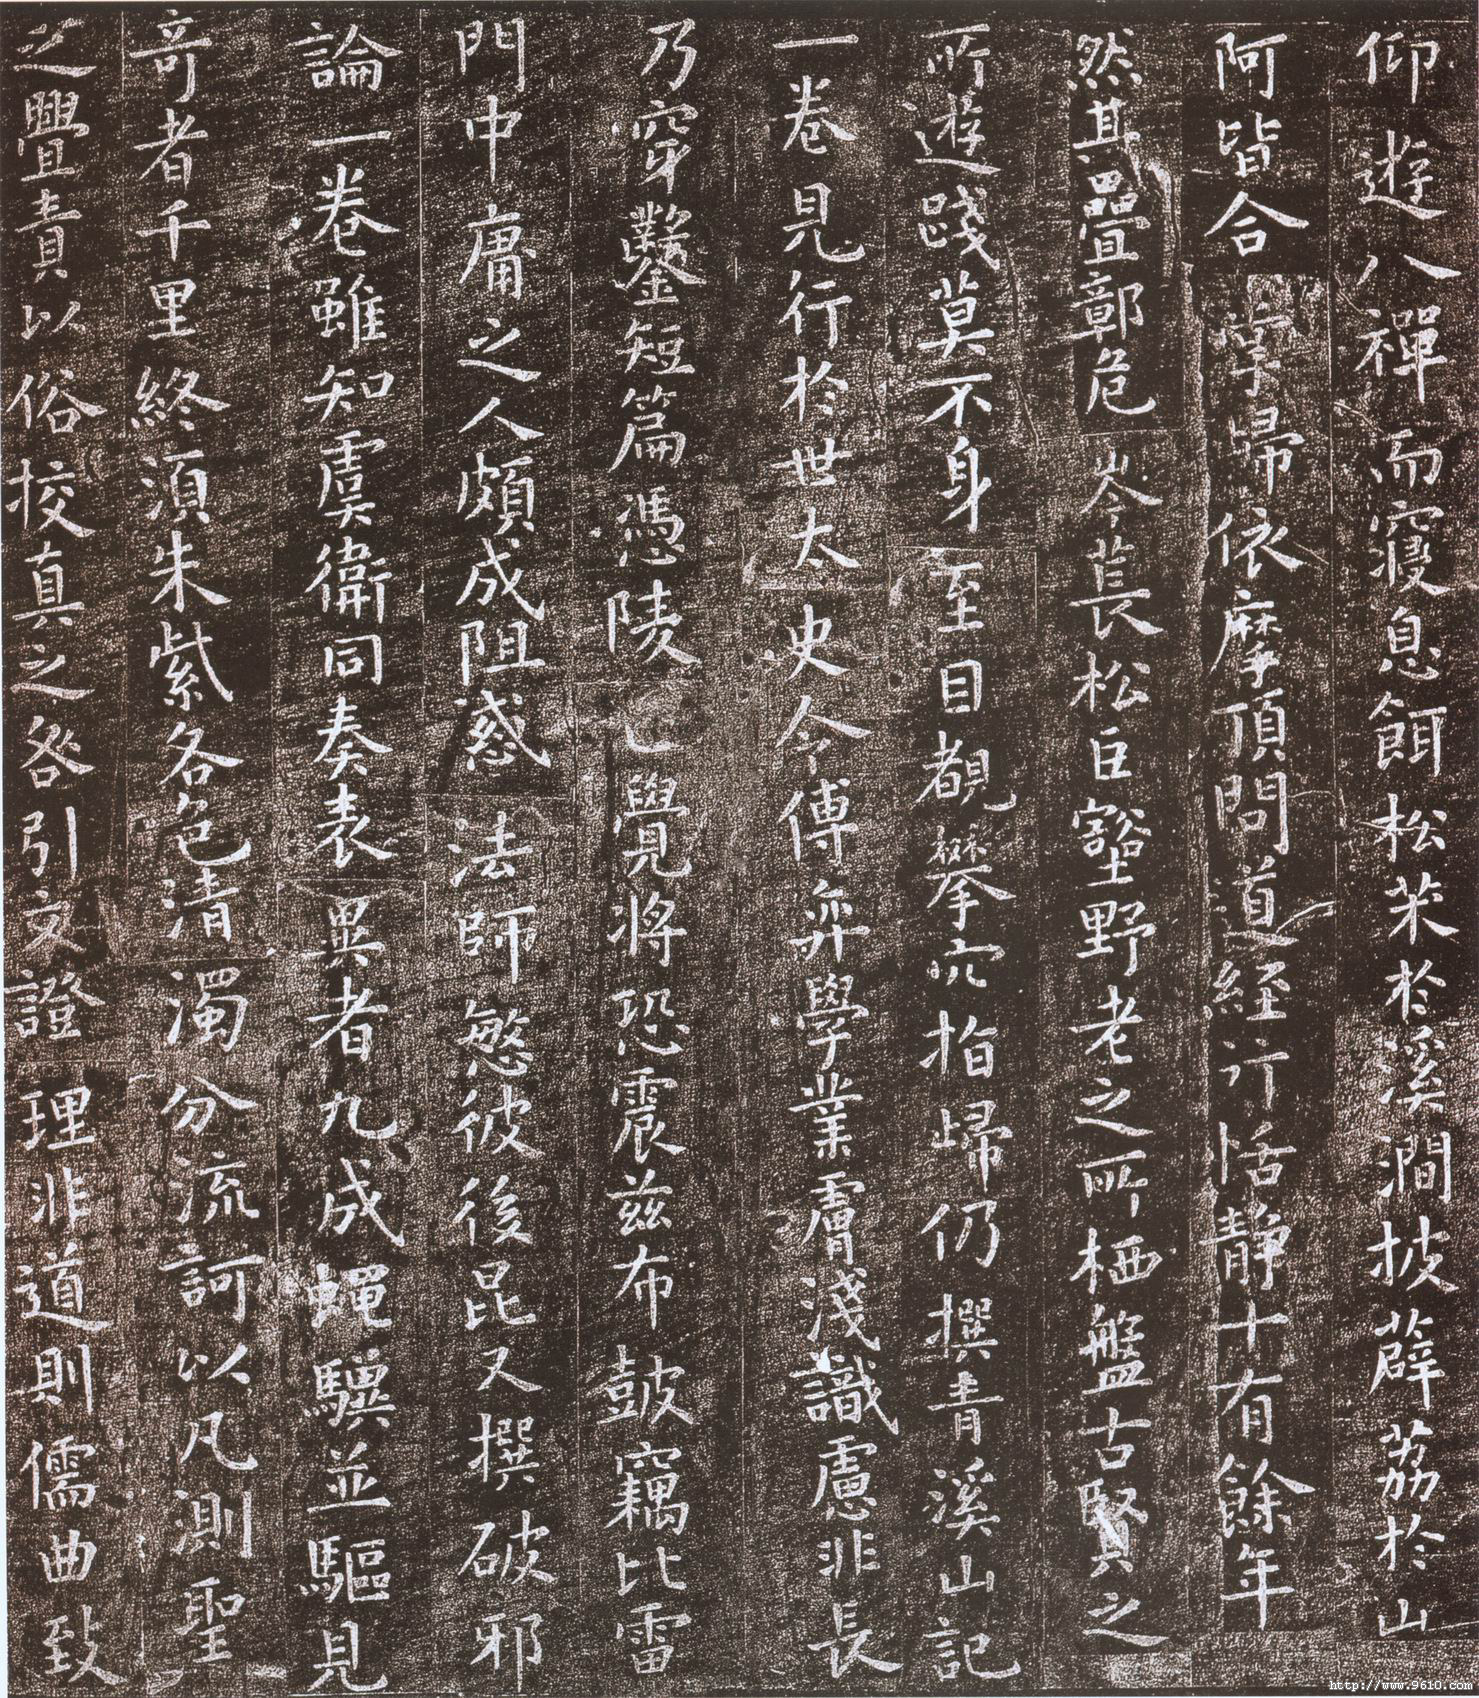 仰遊八禪而寢息餌松朮於溪澗披薜荔於山
阿皆合掌歸依摩頂問道經行恬静十有餘年
然其疊嶂危岑萇松巨壑野老之所栖盤古賢之
所遊踐莫不身至目覩攀穴指歸仍撰青溪山記
一卷見行於世太史令傅弈學業膚淺識慮非長
乃穿鑿短篇憑陵正覺將恐震兹布鼓竊比雷
門中庸之人頗成阻惑法師慜彼後昆又撰破邪
論一卷雖知虞衛同奏表異者九成蝿驥並驅見
奇者千里終須朱紫各色清濁分流訶以凡測聖
之舋責以俗校真之咎引文證理非道則儒曲致
http://www.9610.com